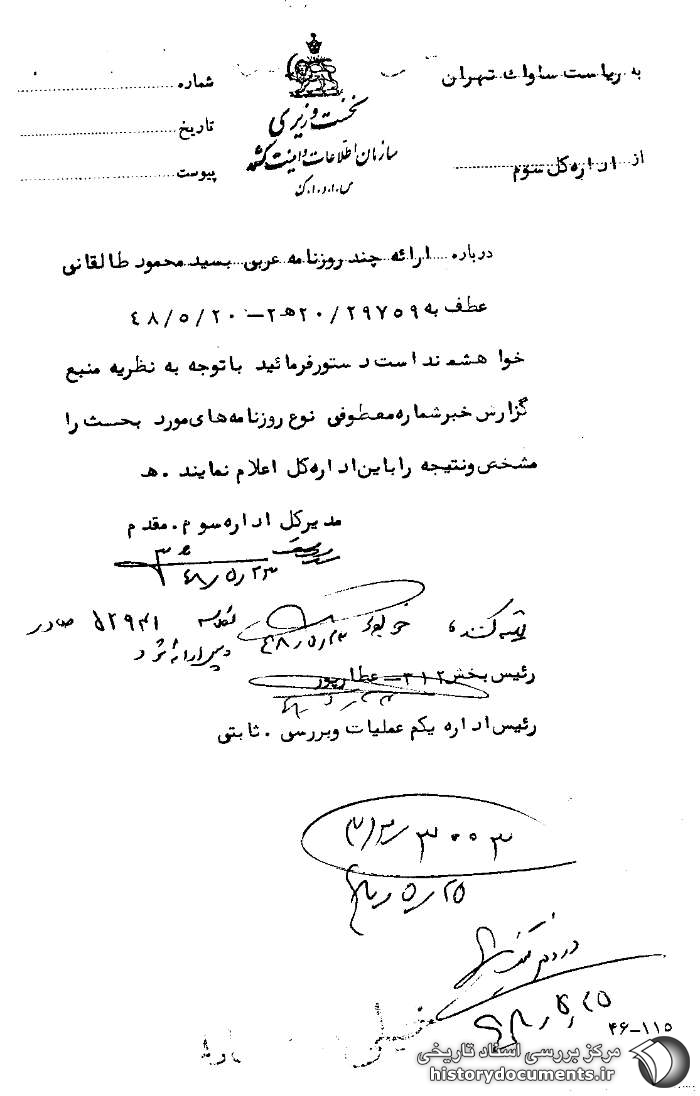 به ریاست ساواک تهران
از اداره کل سوم
نخست وزیری
سازمان اطلاعات و امنیت کشور
س.ا.و.ا.ک
شماره
تاریخ
پیوست
درباره ارائه چند روزنامه عربی بسید محمود طالقانی
عطف به ۲۹۷۵۹/۲۰هـ۲ – ۴۸/۵/۲۰
خواهشمند است دستور فرمائید باتوجه به نظریه منبع
گزارش خبر شماره معطوفی نوع روزنامه های مورد بحث را
مشخص و نتیجه را باین اداره کل اعلام نمایند . هـ
مدیرکل اداره سوم . مقدم
۴۸/۵/۲۳
تهیه کننده
۴۸/۵/۲۳
۵۲۹۴۱ صادر
رئیس بخش ۳۱۲ – عطارپور
رئیس اداره یکم عملیات و بررسی . ثابتی
۳۰۰۳
۲۵/۵/۴۸
۴۶-۱۱۵
مرکز بررسی اسناد تاریخی
historydocuments.ir